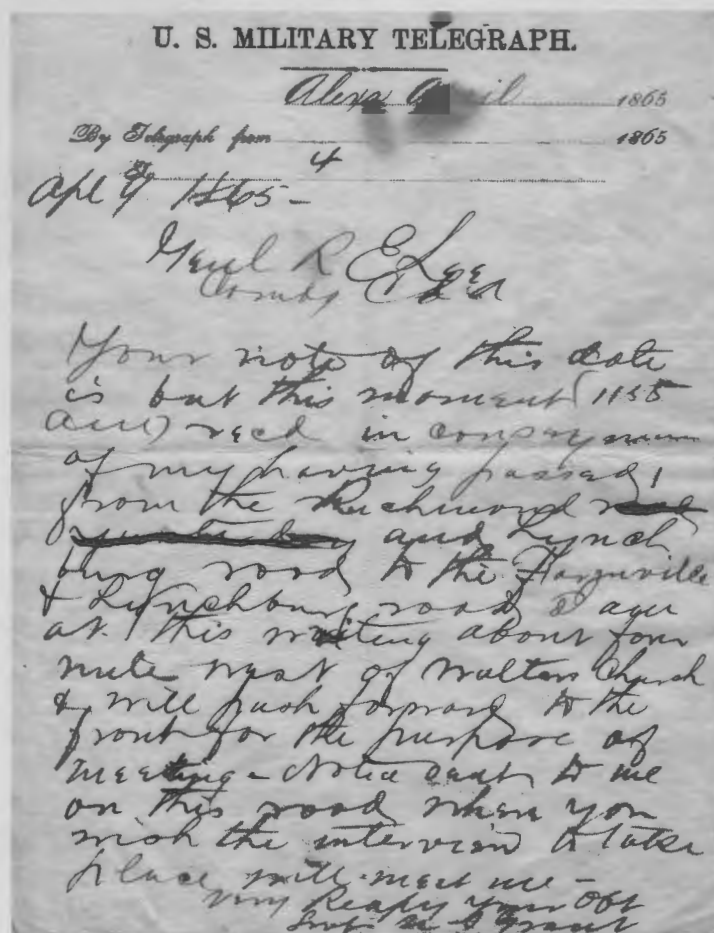 U. S. MILITARY TELEGRAPH.
Alexa April 1865
By Telegraph from 1865
To 4
Apl 9 1865-
Genl R E Lee
Comdg C S A
Your note of this date
is but this moment (1155
am) recd in consequence
of my having passed
from the Richmond road
yesterday and Lynch
burg road to the Farmville
& Lynchburg road I am
at this writing about four
mile west of Walters Church
& will push forward to the
front for the purpose of
meeting - Notice sent to me
on this road where you
wish the interview to take
place will meet me-
Very Respy Your Obt
Svt U S Grant